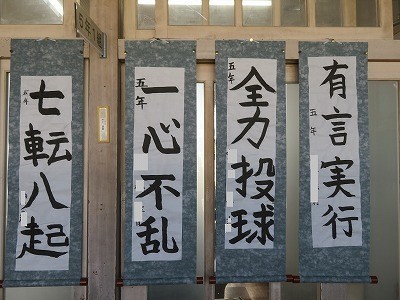 有言実行
五年
全力投球
五年
一心不乱
五年
七転八起
五年